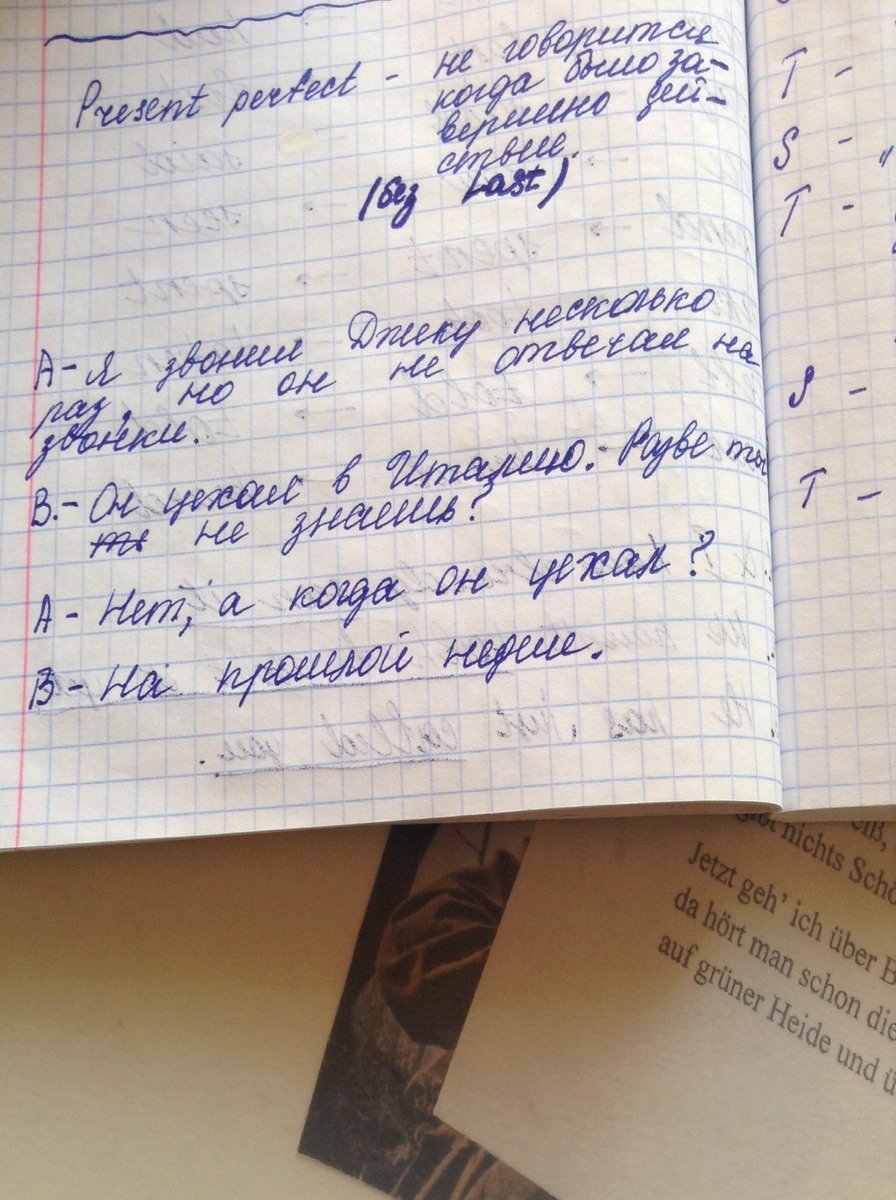 Present perfect - не говорится
когда было за-
вершено дей-
ствие.
(без Last)
А - Я звонил Джеку несколько
раз, но он не отвечал на
звонки.
В. - Он уехал в Италию. - Разве ты
не знаешь?
А - Нет, а когда он уехал?
В - На прошлой неделе.
T -
S -
T -
S -
T -
gibt nichts Schö
Jetzt geh' ich über B
da hört man schon die
auf grüner Heide und ü